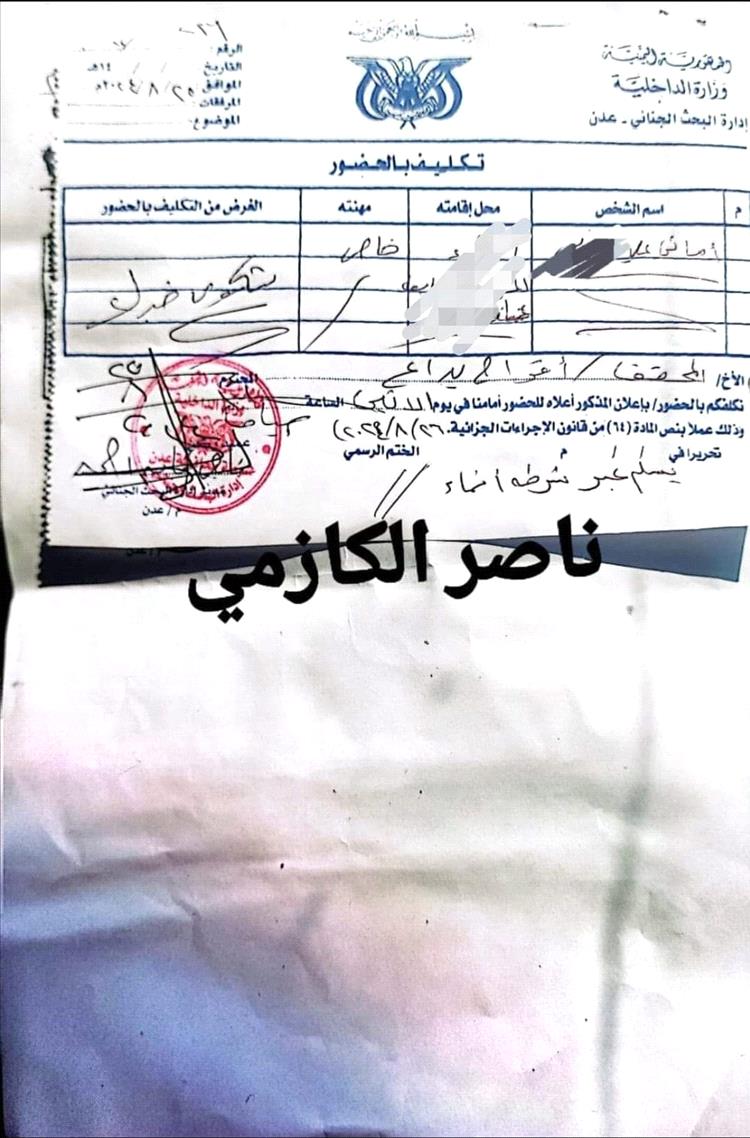 بسم الله الرحمن الرحيم
الجمهورية اليمنية
وزارة الداخلية
إدارة البحث الجنائي - عدن
الرقم:
التاريخ / / ١٤هـ
الموافق ٢٥/ ٨ / ٢٠٢٤م
المرفقات:
الموضوع:
تكليف بالحضور
م اسم الشخص محل إقامته مهنته الغرض من التكليف بالحضور
أماني علي خاص
بشكوى ضدك
الأخ/ المحقق / أفراح المحترم
نكلفكم بالحضور/ بإعلان المذكور أعلاه للحضور أمامنا في يوم الاثنين الساعة
وذلك عملا بنص المادة (٦٤) من قانون الإجراءات الجزائية. ٢٠٢٤/٨/٢٦
تحريرا في م الختم الرسمي
يسلم عبر شرطة انماء
مدير إدارة البحث الجنائي
م / عدن
ناصر الكازمي